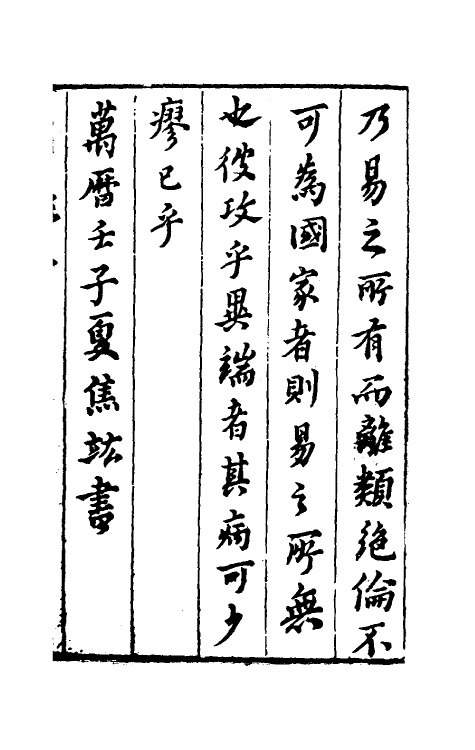 乃易之所有而離類絶倫不
可為國家者則易之所無
也彼攻乎異端者其病可少
瘳已乎
萬曆壬子夏焦竑書